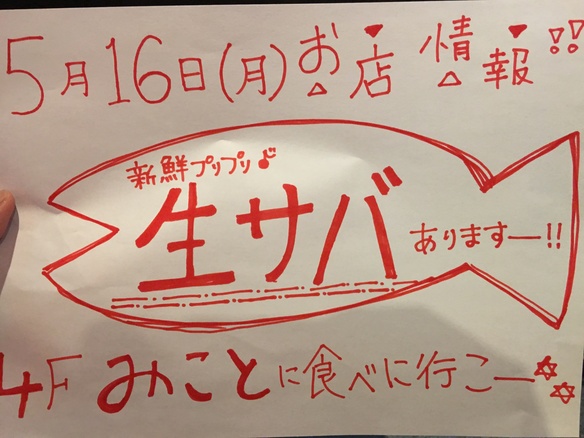 5月16日(月)お店情報!!
新鮮プリプリ♪
生サバ
ありますー!!
4F みことに食べに行こー